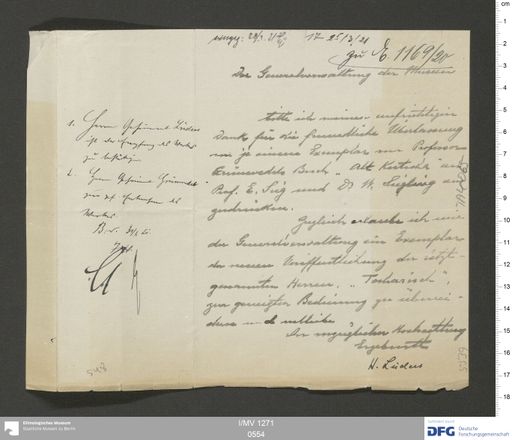 17 25/3/21
zu E. 1169/20
Der Generalverwaltung der Museen
bitte ich meinen aufrichtigen
Dank für die freundliche Überlassung
von je einem Exemplar von Professor
Grünwedels Buch „Alt Kutscha" an
Prof. E. Sieg und Dr W. Siegling
auszudrücken.
Zugleich erlaube ich mir
der Generalverwaltung ein Exemplar
der neuen Veröffentlichung der jetzt
genannten Herren, „Tocharisch",
zur geneigten Bedienung zu übersenden
und verbleibe
In vorzüglicher Hochachtung
Ergebenst
H. Lüders
1. Herrn Geheimrat Lüders
ist der Empfang des Werkes
zu bestätigen
2. Herrn Geheimrat Grünwedel
des
Werkes
B.
548
5539
Ethnologisches Museum
Staatliche Museen zu Berlin
I/MV 1271
0554
DFG
Deutsche
Forschungsgemeinschaft
cm
1
2
3
4
5
6
7
8
9
10
11
12
13
14
15
16
17
18